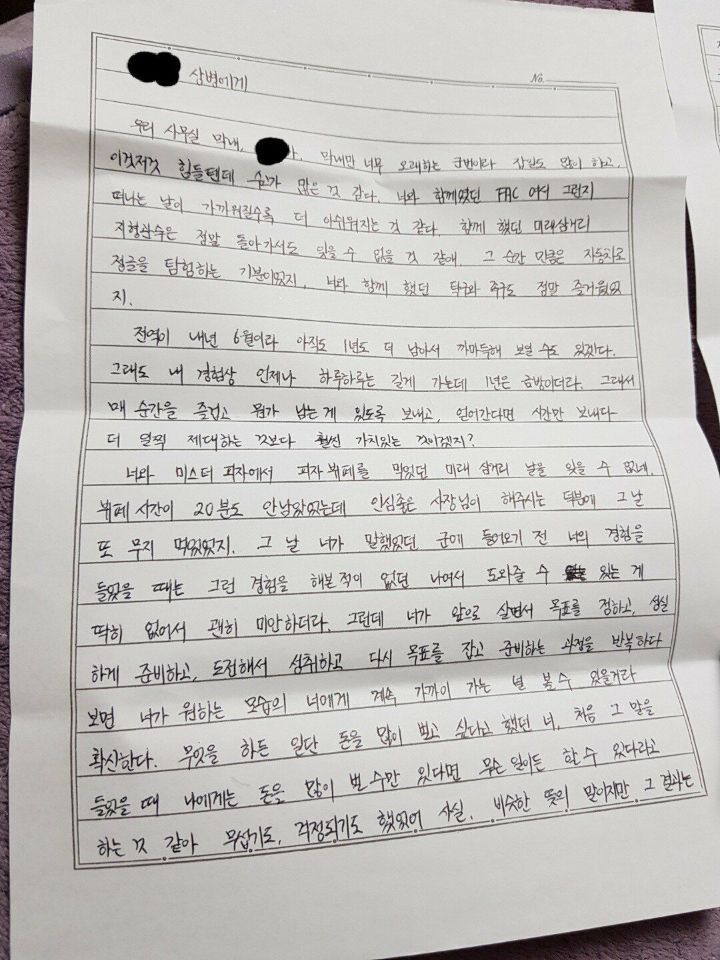 상병에게
No.
우리 사무실 막내, 아. 막내만 너무 오래하는 군번이라 잡일도 많이 하고,
이것저것 힘들텐데 수고가 많은 것 같다. 너와 함께였던 FAC 여서 그런지
떠나는 날이 가까워질수록 더 아쉬워지는 것 같다. 함께 했던 미래삼거리
지형산수은 정말 돌아가서도 잊을 수 없을 것 같애. 그 순간 만큼은 자동차로
정글을 탐험하는 기분이었지. 너와 함께 했던 탁구와 족구도 정말 즐거웠었
지.
전역이 내년 6월이라 아직도 1년도 더 남아서 까마득해 보일 수도 있겠다.
그래도 내 경험상 언제나 하루하루는 길게 가는데 1년은 금방이더라. 그래서
매 순간을 즐겁고 뭔가 남는 게 있도록 보내고, 얻어간다면 시간만 보내다
더 일찍 제대하는 것보다 훨씬 가치있는 것이겠지?
너와 미스터 피자에서 피자 뷔페를 먹었던 미래 삼거리 날을 잊을 수 없네.
뷔페 시간이 20분도 안남았었는데 인심좋은 사장님이 해주시는 덕분에 그 날
또 무지 먹었었지. 그 날 너가 말했었던 군에 들어오기 전 너의 경험을
들었을 때는 그런 경험을 해본 적이 없던 나여서 도와줄 수 있는 게
딱히 없어서 괜히 미안하더라. 그런데 너가 앞으로 살면서 목표를 정하고, 성실
하게 준비하고, 도전해서 성취하고 다시 목표를 잡고 준비하는 과정을 반복하다
보면 너가 원하는 모습의 너에게 계속 가까이 가는 널 볼 수 있을거라
확신한다. 무엇을 하든 일단 돈을 많이 벌고 싶다고 했던 너. 처음 그 말을
들었을 때 나에게는 돈을 많이 벌 수만 있다면 무슨 일이든 할 수 있다라고
하는 것 같아 무섭기도, 걱정되기도 했었어 사실. 비슷한 뜻의 말이지만 그 결과는